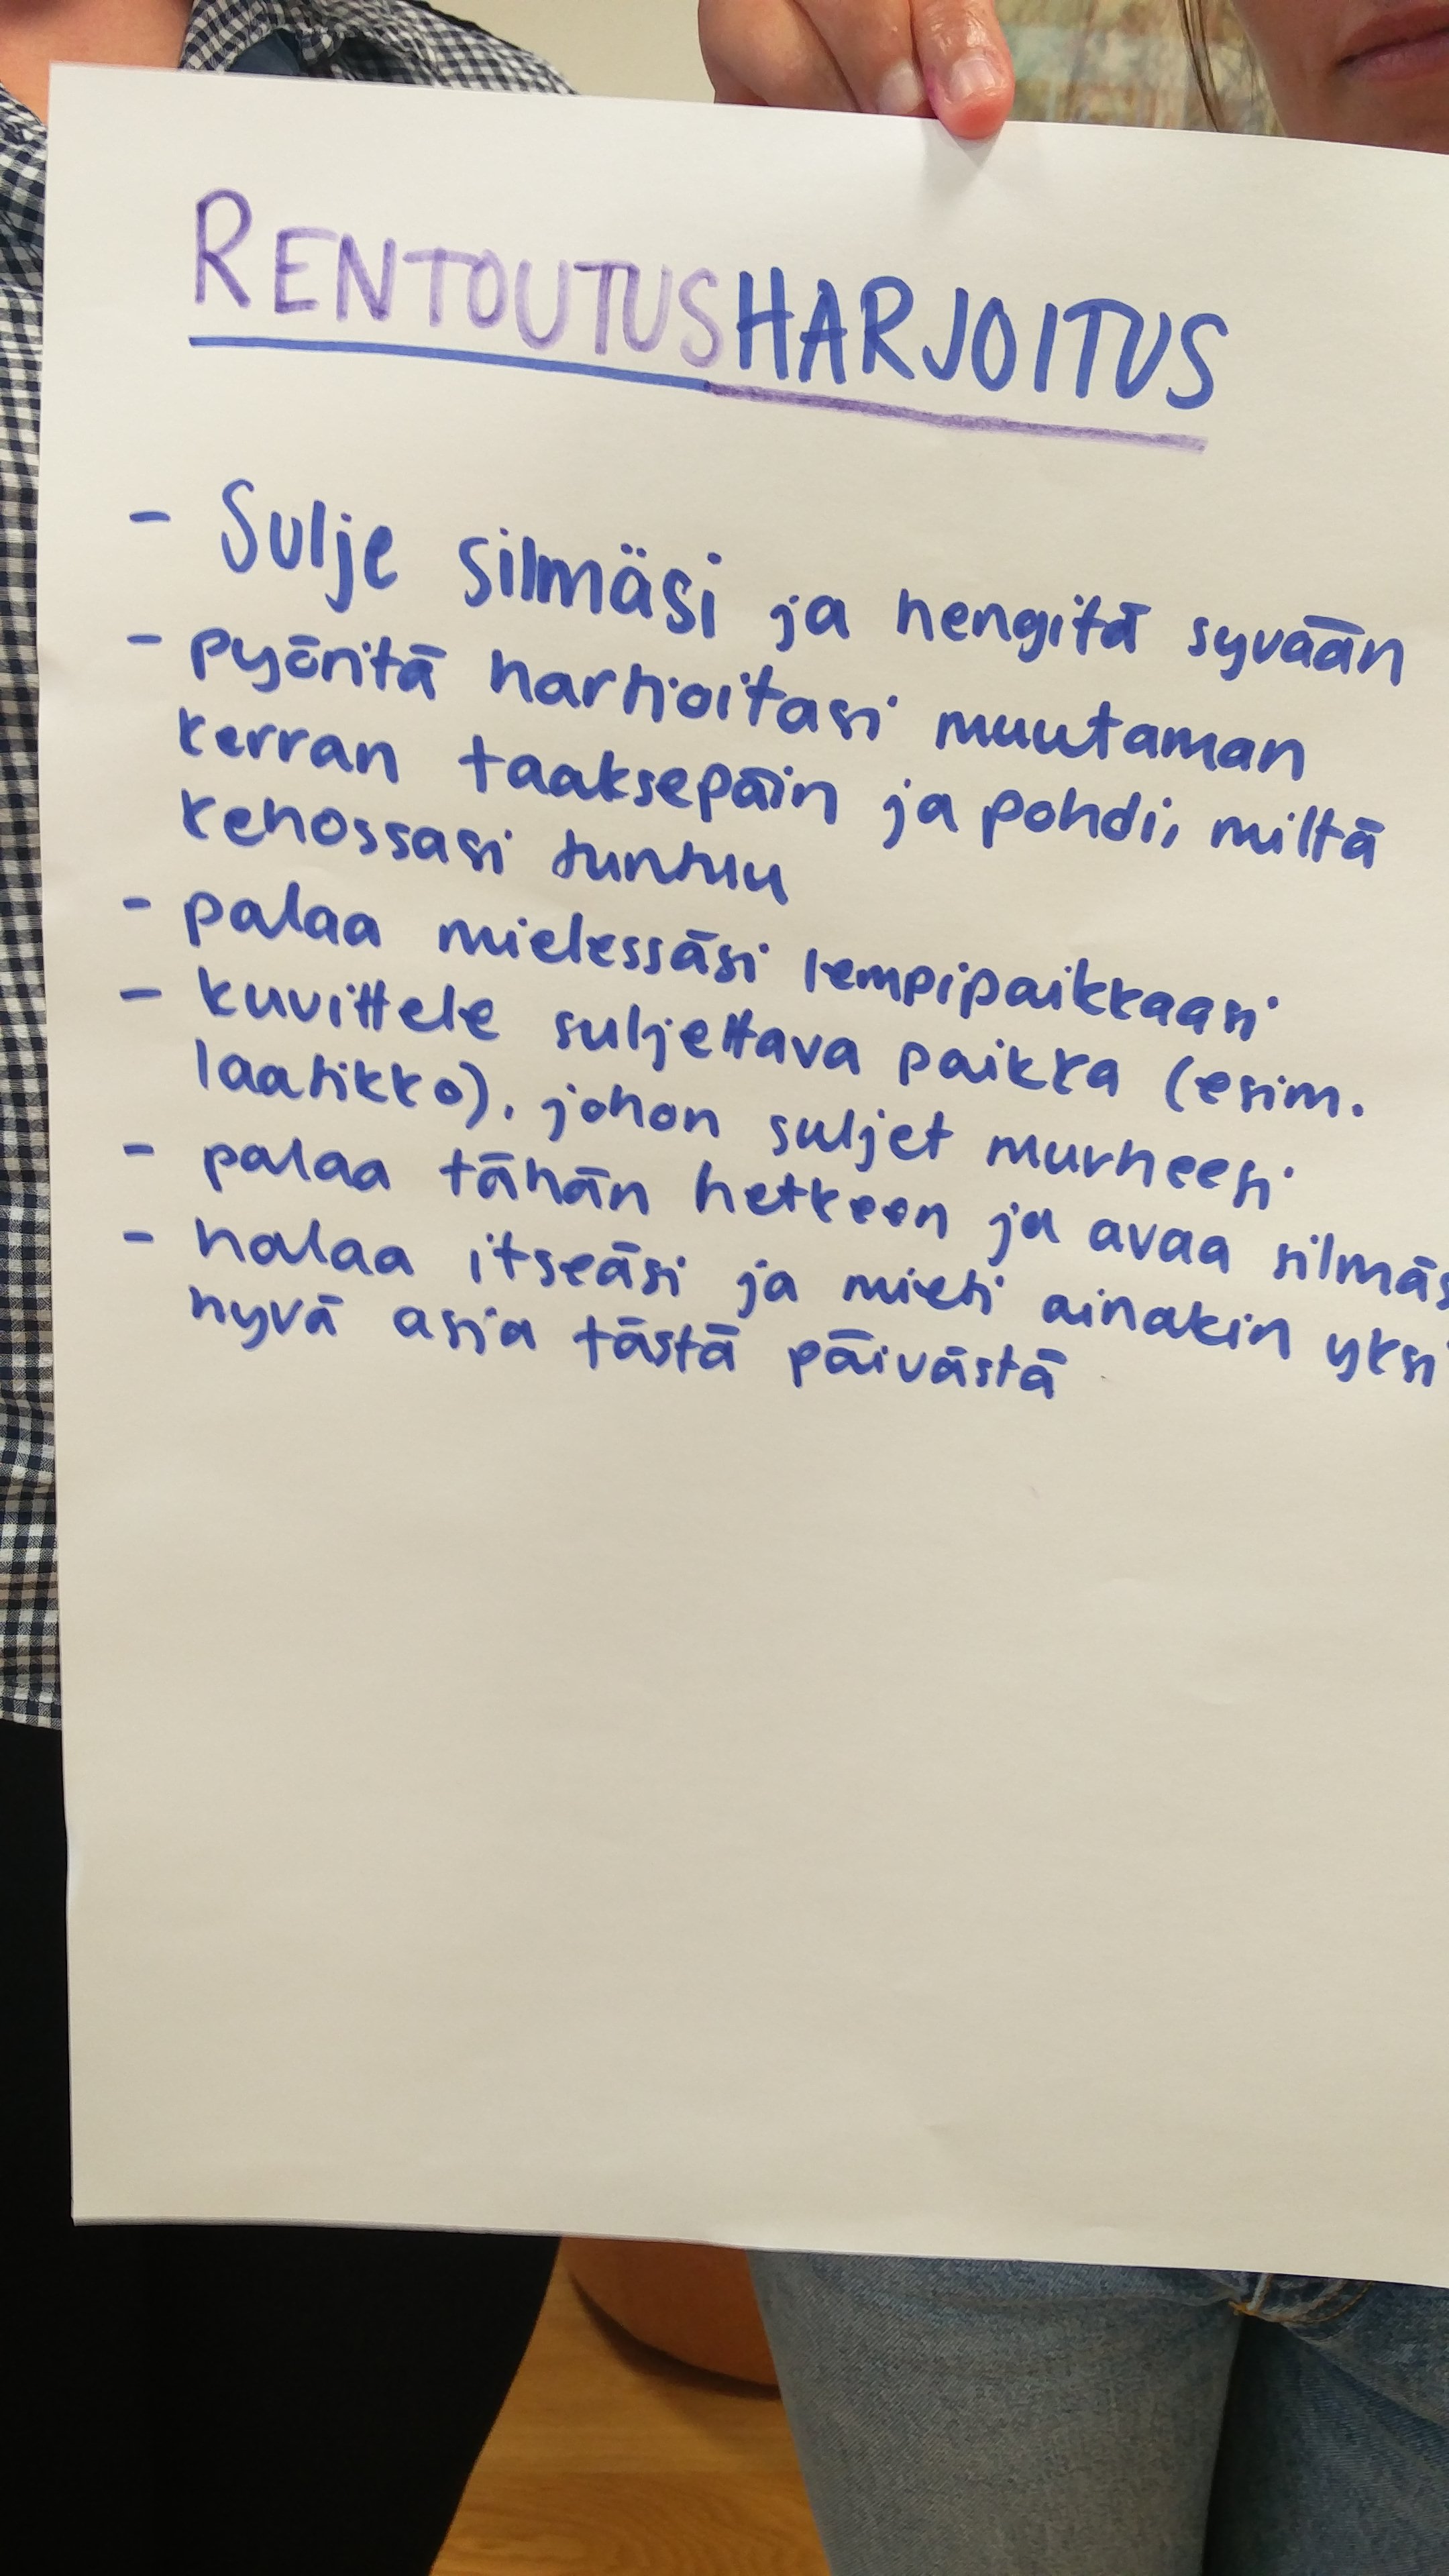 RENTOUTUSHARJOITUS
- Sulje silmäsi ja hengitä syvään
- pyöritä hartioitasi muutaman
kerran taaksepäin ja pohdi, miltä
kehossasi tuntuu
- palaa mielessäsi lempipaikkaasi
- kuvittele suljettava paikka (esim.
laatikko), johon suljet murheesi
- palaa tähän hetkeen ja avaa silmäs
- halaa itseäsi ja mieti ainakin yksi
hyvä asia tästä päivästä